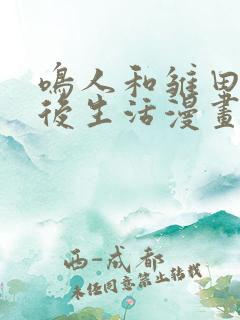 鳴人和雛田
後生活漫畫
西-成都
未经同意禁止转载